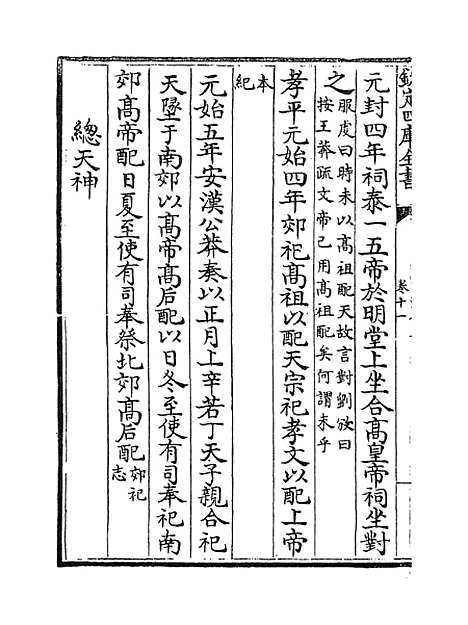 欽定四庫全書
卷十一
元封四年祠泰一五帝於明堂上坐合髙皇帝祠坐對
之服虔曰時未以髙祖配天故言對劉攽曰
按王莽疏文帝已用髙祖配矣何謂未乎
孝平元始四年郊祀髙祖以配天宗祀孝文以配上帝
本紀
元始五年安漢公莽奏以正月上辛若丁天子親合祀
天墬于南郊以髙帝髙后配以日冬至使有司奉祀南
郊髙帝配日夏至使有司奉祭北郊髙后配郊祀志
總天神